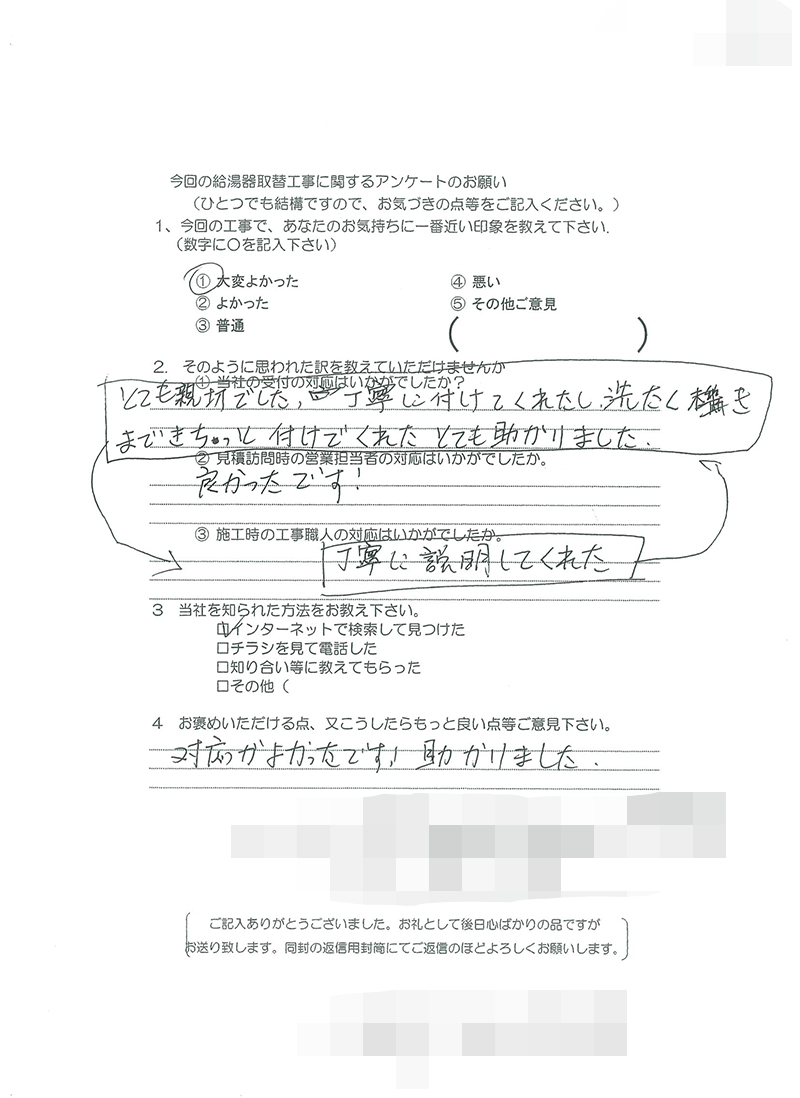 今回の給湯器取替工事に関するアンケートのお願い
（ひとつでも結構ですので、お気づきの点等をご記入ください。）
1、今回の工事で、あなたのお気持ちに一番近い印象を教えて下さい.
（数字に〇を記入下さい）
① 大変よかった
④ 悪い
② よかった
⑤ その他ご意見
③ 普通
（　　　　　）
2. そのように思われた訳を教えていただけませんか
① 当社の受付の対応はいかがでしたか？
とても親切でした, 丁寧に付けてくれたし、洗たく機き
まできちっと 付けてくれた とても助かりました.
② 見積訪問時の営業担当者の対応はいかがでしたか。
良かったです!
③ 施工時の工事職人の対応はいかがでしたか。
丁寧に説明してくれた
3 当社を知られた方法をお教え下さい。
□インターネットで検索して見つけた
□チラシを見て電話した
□知り合い等に教えてもらった
□その他（
4 お褒めいただける点、又こうしたらもっと良い点等ご意見下さい。
対応がよかったです! 助かりました.
ご記入ありがとうございました。お礼として後日心ばかりの品ですが
お送り致します。同封の返信用封筒にてご返信のほどよろしくお願いします。